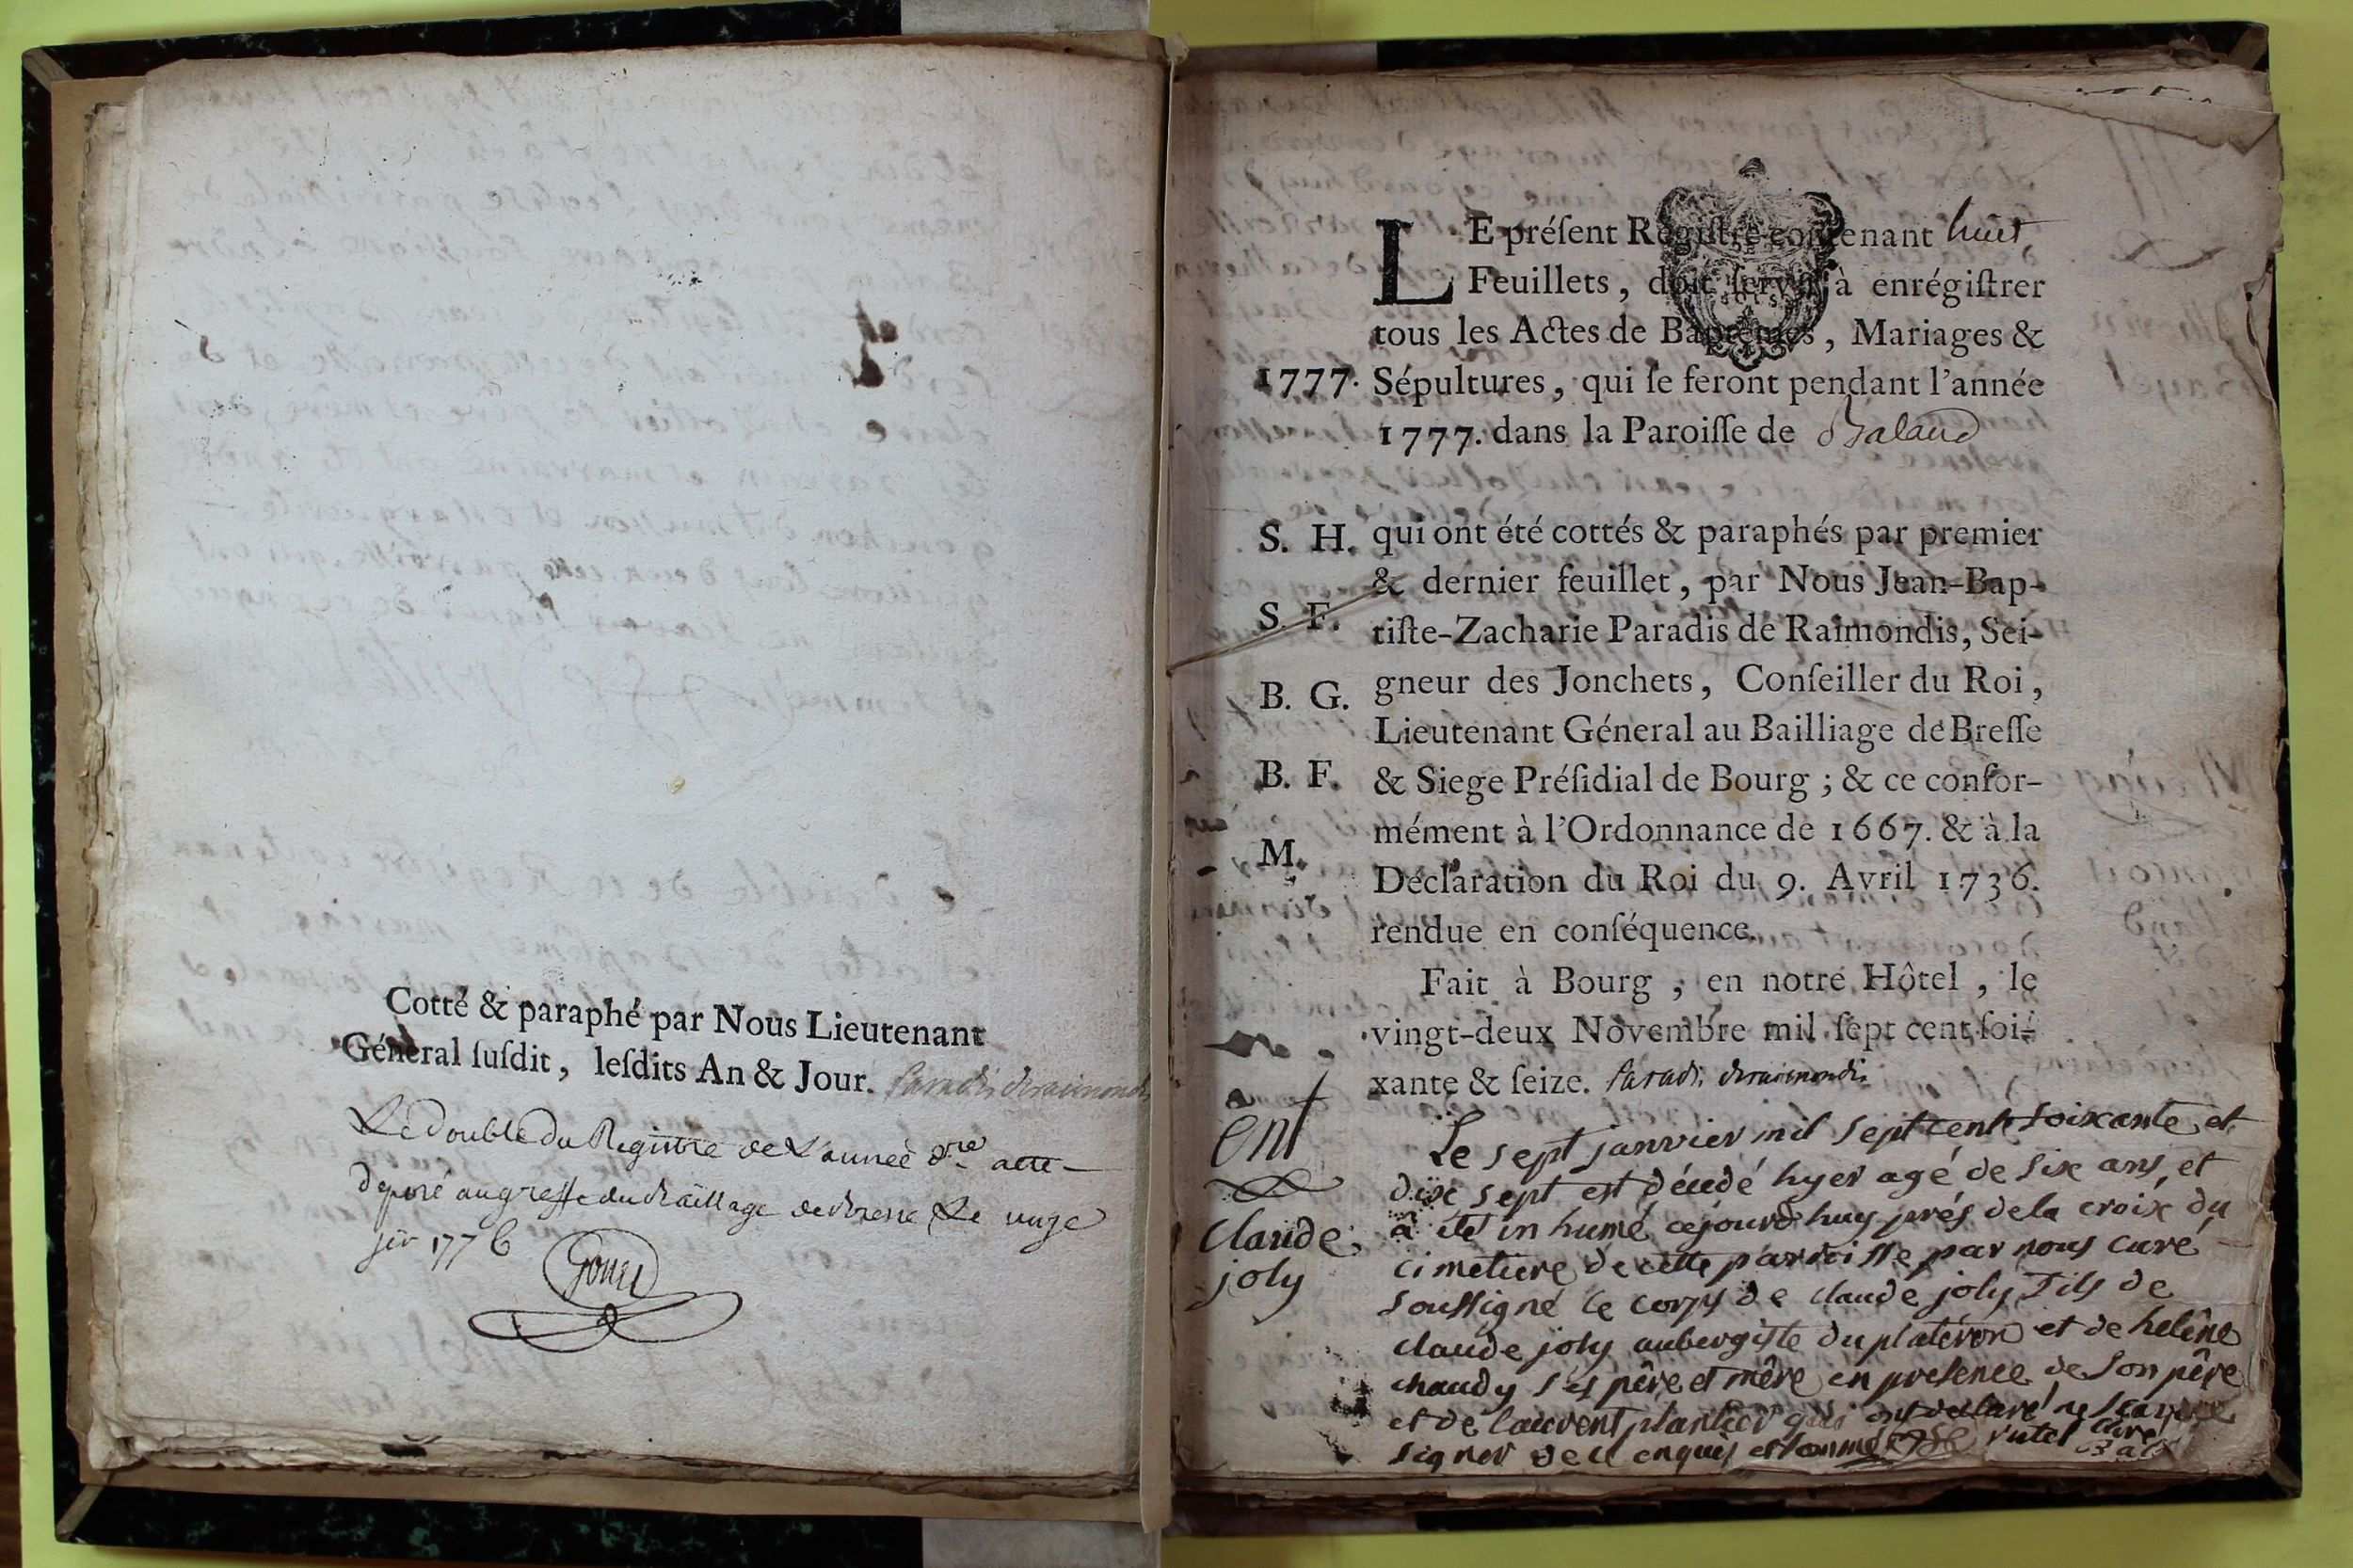 Cotté & paraphé par Nous Lieutenant
Géneral ſuſdit, leſdits An & Jour. Paradis deraimondis
Le Double du Registre de L'année d.re a ette
deposé au greffe du Bailliage de Bresse Le
1776
LE préſent Regiſtre contenant huit
Feuillets, doit ſervir à enrégiſtrer
tous les Actes de Baptêmes, Mariages &
1777. Sépultures, qui ſe feront pendant l'année
1777. dans la Paroiſſe de Baland
S. H. qui ont été cottés & paraphés par premier
& dernier feuillet, par Nous Jean-Bap-
S. F. tiſte-Zacharie Paradis de Raimondis, Sei-
B. G. gneur des Jonchets, Conſeiller du Roi,
Lieutenant Géneral au Bailliage de Breſſe
B. F. & Siege Préſidial de Bourg; & ce confor-
mément à l'Ordonnance de 1667. & à la
M. Déclaration du Roi du 9. Avril 1736.
rendue en conſéquence.
Fait à Bourg, en notre Hôtel, le
vingt-deux Novembre mil ſept cent ſoi-
xante & ſeize. Paradis deraimondis
ent
claude
joly
Le sept janvier mil sept cent soixante et
dix sept est décédé hyer agé de six ans, et
a été inhumé cejourdhuy prés de la croix du
cimetiere de cette parroisse par nous curé
soussigné le corps de claude joly fils de
claude joly aubergiste du platéron et de helêne
chaudy ses pêre et mêre en presence de son pêre
et de laurent plantier qui ont declaré ne scavoir
signer de ce enquis et sommé curé